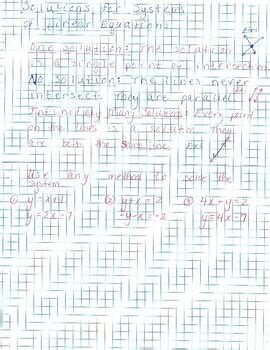 Solutions for Systems
of Linear Equations
One Solution: The solution
is a single point of intersection
No Solution: The lines never
intersect. They are parallel
Infinitely Many Solutions: Every point
on the lines is a solution. They
are both the same line. Ex:
Use any method to solve the
system.
① y = x+1 ② y+x = 2 ③ 4x - y = 2
y = 2x-7 -y-x = -2 y = 4x-7